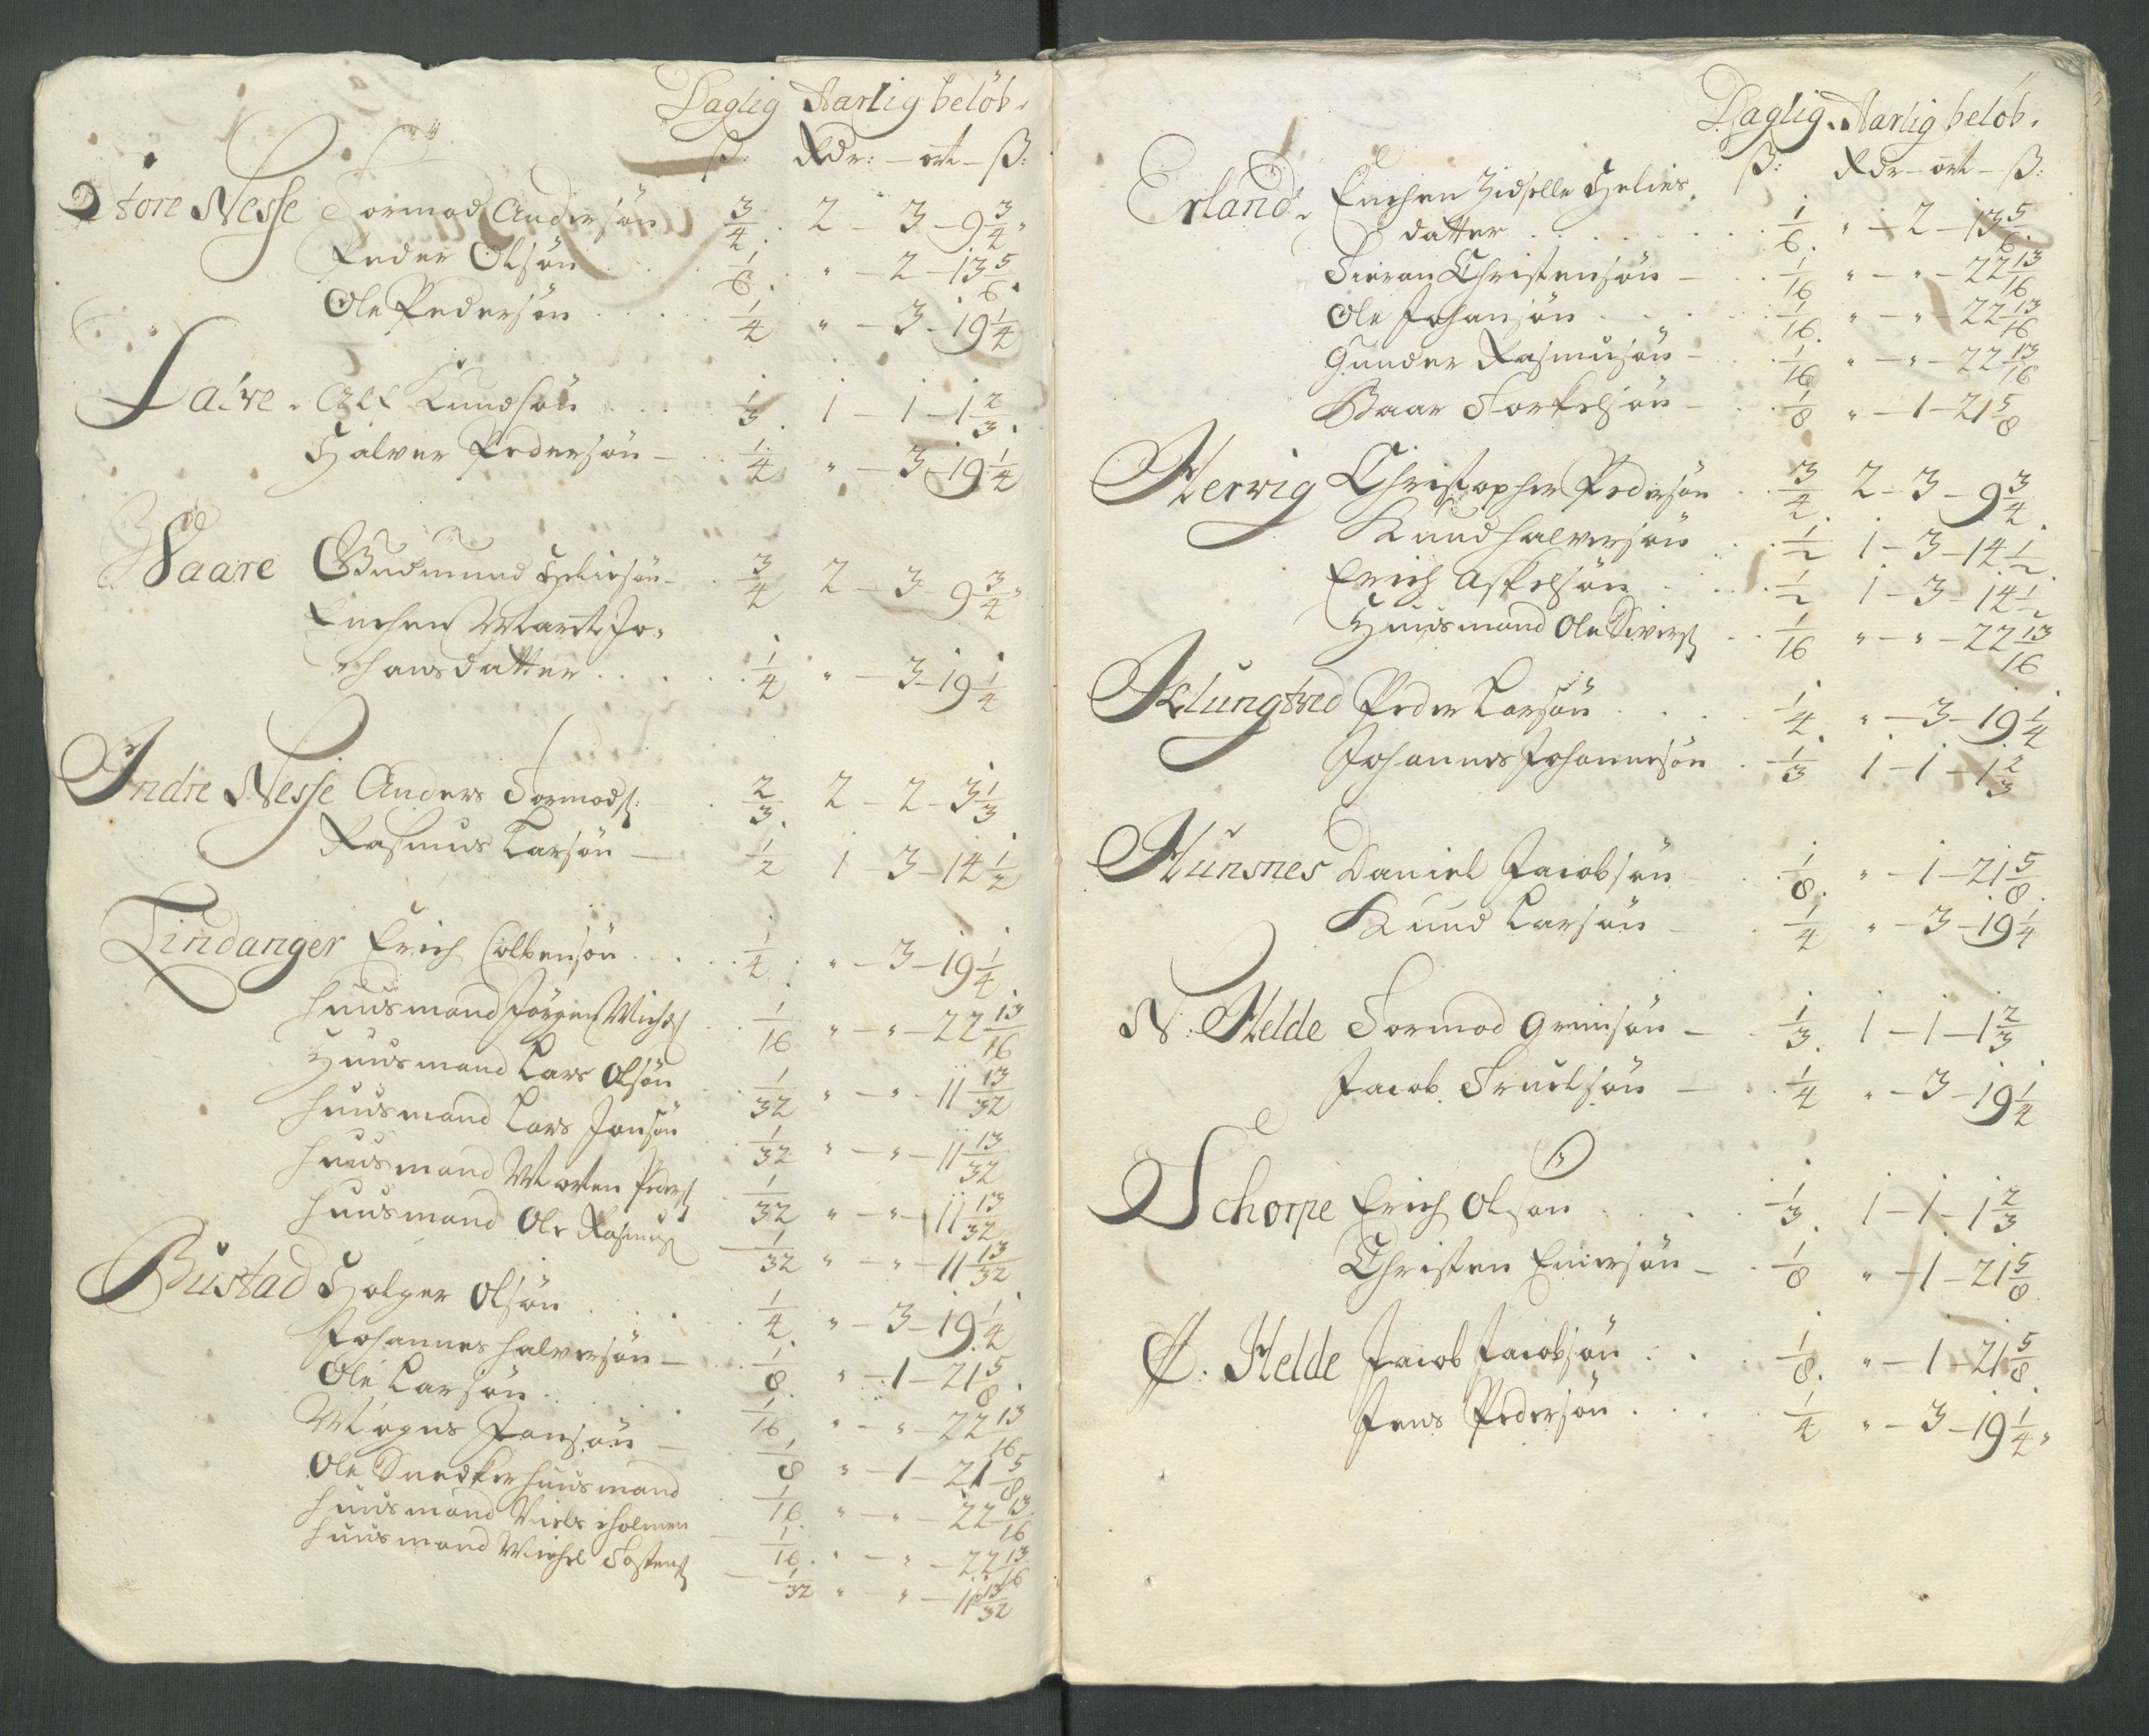 Daglig Aarlig beløb.
ß: Rdr: – ort – ß:
Store Nesse Tormod Andersøn 3/4 . 2 – 3 – 9 3/4
Peder Olsøn . . . 1/6 . " – 2 – 13 5/6.
Ole Pedersøn . . . . 1/4 " – 3 – 19 1/4
Salve. Alf Knudsøn . . . 1/3. 1 – 1 – 1 2/3.
Halver Pedersøn – . . 1/4 " – 3 – 19 1/4
Waare Gudmund Heliesøn – . 3/4 2 – 3 – 9 3/4
Enchen Marit Jo-
hansdatter . . . . . 1/4 " – 3 – 19 1/4
Indre Nesse Anders Tormods: . 2/3. 2 – 2 – 3 1/3
Rasmus Larsøn – 1/2 1 – 3 – 14 1/2
Lindanger Erich Colbensøn . . . . 1/4 . " – 3 – 19 1/4
huusmand Jørgen Mich. . 1/16 " – " – 22 13/16
Huusmand Lars Olsøn . 1/32 " – " – 11 13/32
huusmand Lars Jonsøn . 1/32 " – " – 11 13/32
huusmand Morten Peders . 1/32 " – " – 11 13/32
huusmand Ole Rasmus – 1/32 " – " – 11 13/32
Bustad Holger Olsøn . . . . 1/4 " – 3 – 19 1/4
Johannes halversøn – . . 1/8. " – 1 – 21 5/8.
Ole Larsøn . . . . 1/16 " – " – 22 13/16
Mogns Jonsøn – 1/8 " – 1 – 21 5/8
Ole Snedker huusmand . 1/16 " – " – 22 13/16
huusmand Niels i holmen – 1/16. " – " – 22 13/16
huusmand Michel Tostens – 1/32 " – " – 11 13/32
Daglig. Aarlig beløb.
ß: Rdr – ort – ß:
Erland. Enchen Zidselle Helies-
datter . . . . . . 1/6. " – 2 – 13 5/6.
Siovan Christensøn – . . 1/16 " – " – 22 13/16
Ole Johansøn . . . . 1/16. " – " – 22 13/16
Gunder Rasmusøn – . . 1/16 " – " – 22 13/16
Baar Torkelsøn – . . 1/8 " – 1 – 21 5/8
Herwig Christopher Pedersøn . . 3/4 2 – 3 – 9 3/4.
Knud halversøn . . 1/2 1 – 3 – 14 1/2
Erich Askelsøn . . . 1/2 1 – 3 – 14 1/2
Huusmand Ole Sivers . . 1/16 " – " – 22 13/16
Klungtved Peder Larsøn . . . . 1/4. " – 3 – 19 1/4
Johannes Johannesøn . 1/3 1 – 1 – 1 2/3
Hunsnes Daniel Jacobsøn . . 1/8. " – 1 – 21 5/8.
Knud Larsøn – . 1/4 " – 3 – 19 1/4
N: Helde Tormod Grimsøn – . 1/3. 1 – 1 – 1 2/3
Jacob Truelsøn – . . 1/4 " – 3 – 19 1/4
Schorpe Erich Olsøn . . . . 1/3. 1 – 1 – 1 2/3
Christen Enersøn – . 1/8 " – 1 – 21 5/8
Helde Jacob Jacobsøn . . . 1/8. " – 1 – 21 5/8.
Jens Pedersøn . . . . 1/4 " – 3 – 19 1/4